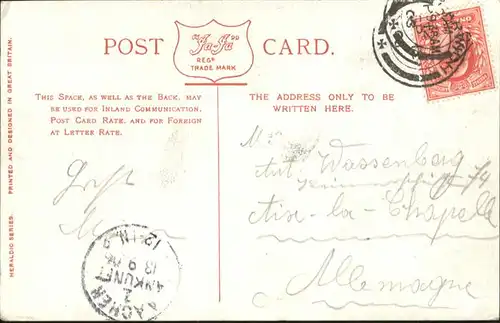 POST CARD.
"Ja-Ja"
REGD
TRADE MARK
THIS SPACE, AS WELL AS THE BACK, MAY
BE USED FOR INLAND COMMUNICATION,
POST CARD RATE, AND FOR FOREIGN
AT LETTER RATE.
THE ADDRESS ONLY TO BE
WRITTEN HERE.
HERALDIC SERIES. PRINTED AND DESIGNED IN GREAT BRITAIN.
Wassenberg
74
Aix-la-Chapelle
Allemagne
AACHEN
2
ANKUNFT
13 9
12-1N